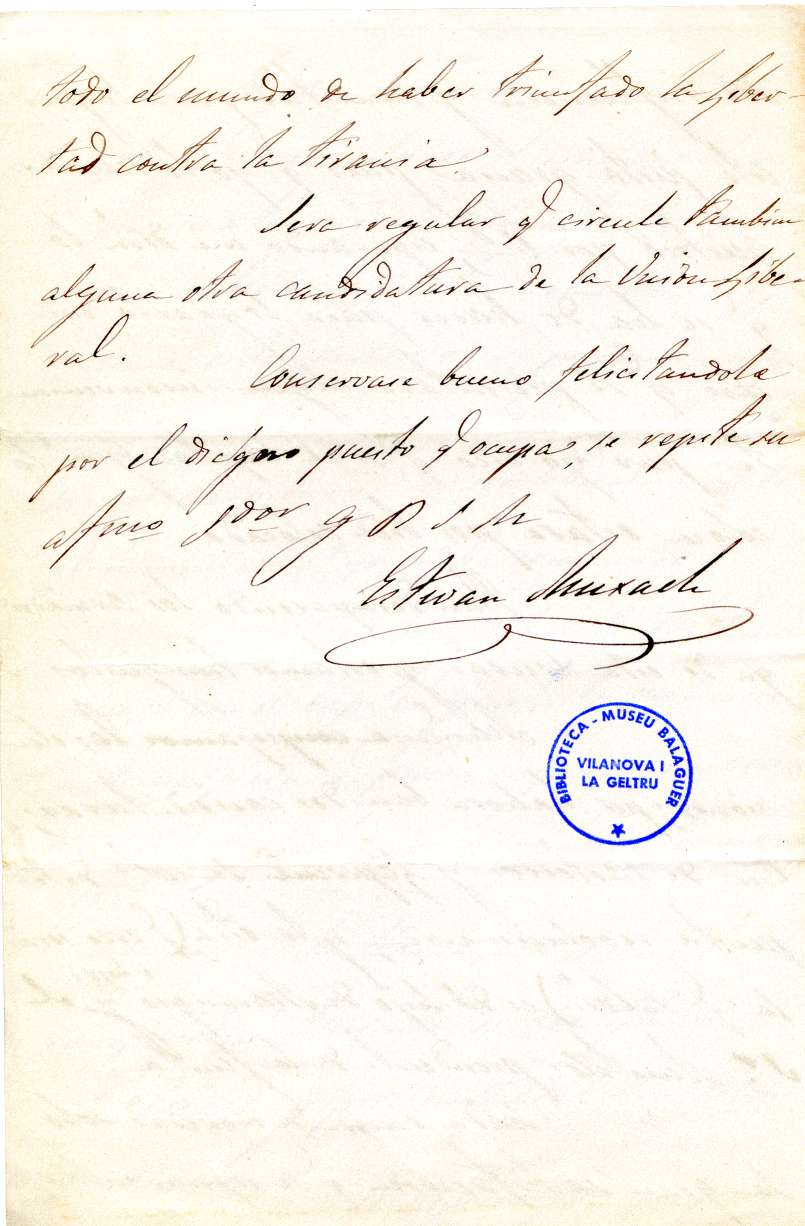 todo el mundo de haber triunfado la Liber-
tad contra la tirania.
Sera regular q circule tambien
alguna otra candidatura de la Union Libe-
ral.
Conservase bueno felicitandole
por el digno puesto q ocupa, se repite su
afmo Sdor Q B S M
Estevan Muxach
BIBLIOTECA - MUSEU BALAGUER
VILANOVA I
LA GELTRU